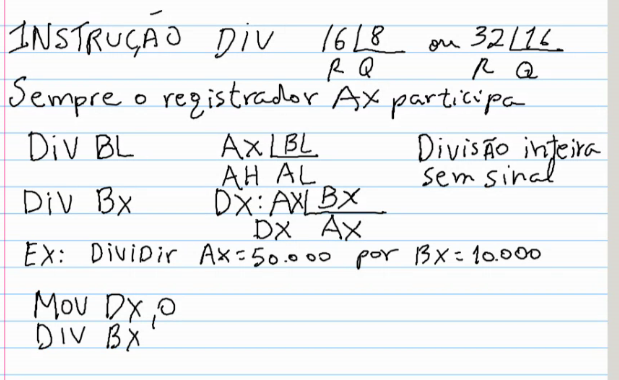 INSTRUÇÃO DIV 16⌊8 ou 32⌊16
R Q R Q
Sempre o registrador AX participa
DIV BL AX⌊BL Divisão inteira
AH AL sem sinal
DIV BX DX:AX⌊BX
DX AX
EX: DIVIDIR AX=50.000 por BX=10.000
MOV DX,0
DIV BX